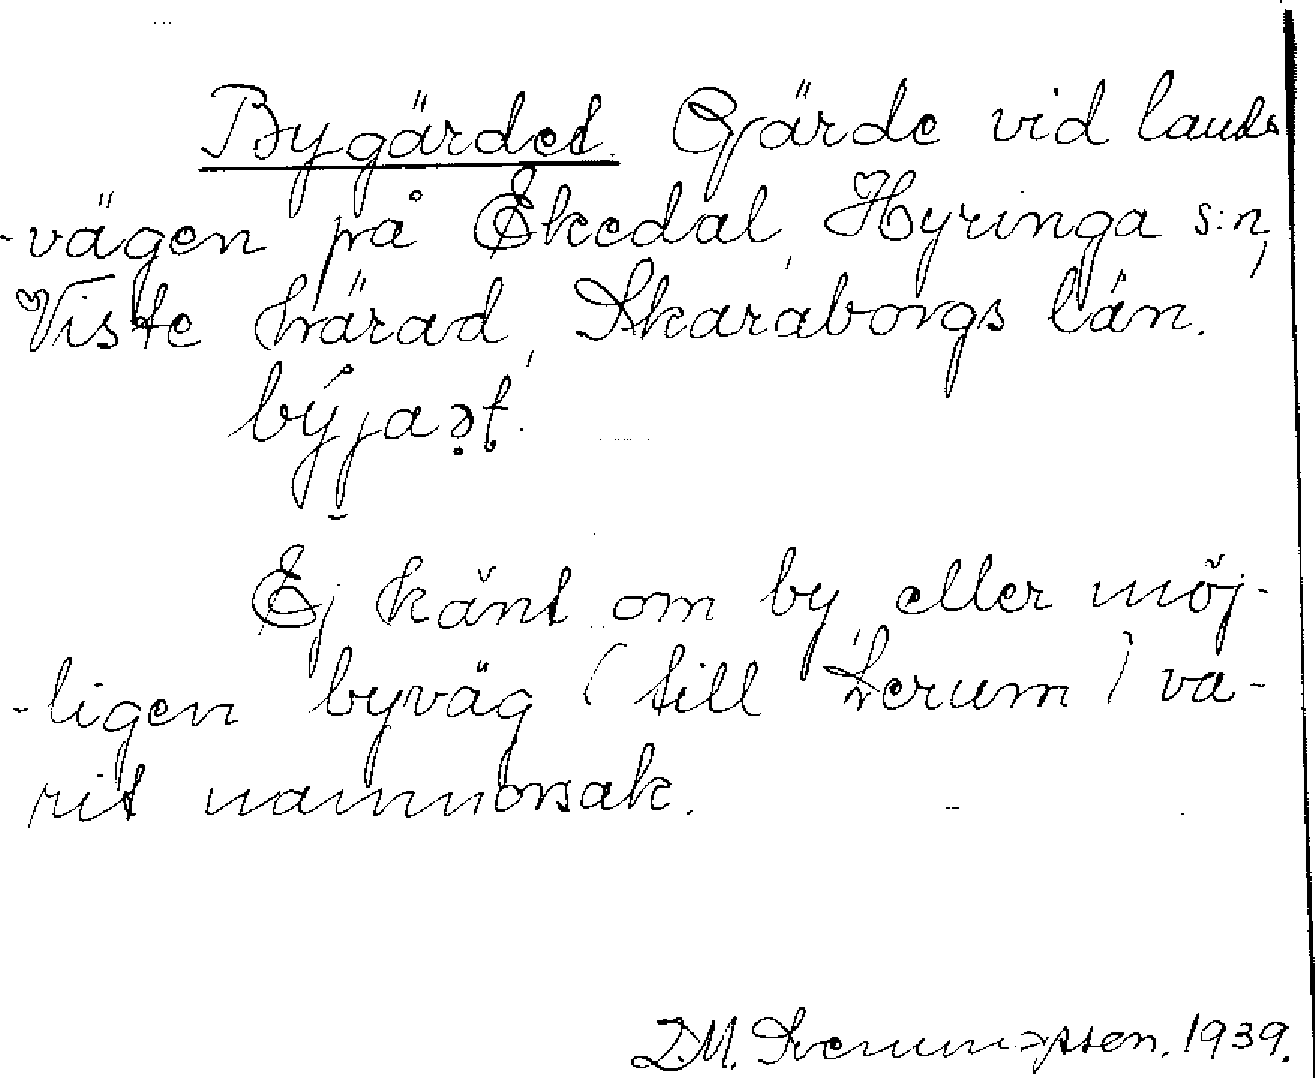 Bygärdet. Gärde vid lands
-vägen på Ekedal, Hyringa s:n,
Viste härad, Skaraborgs län.
Ej känt om by, eller möj-
-ligen byväg (till Lerum) va-
rit namnorsak.
D.M. 1939.